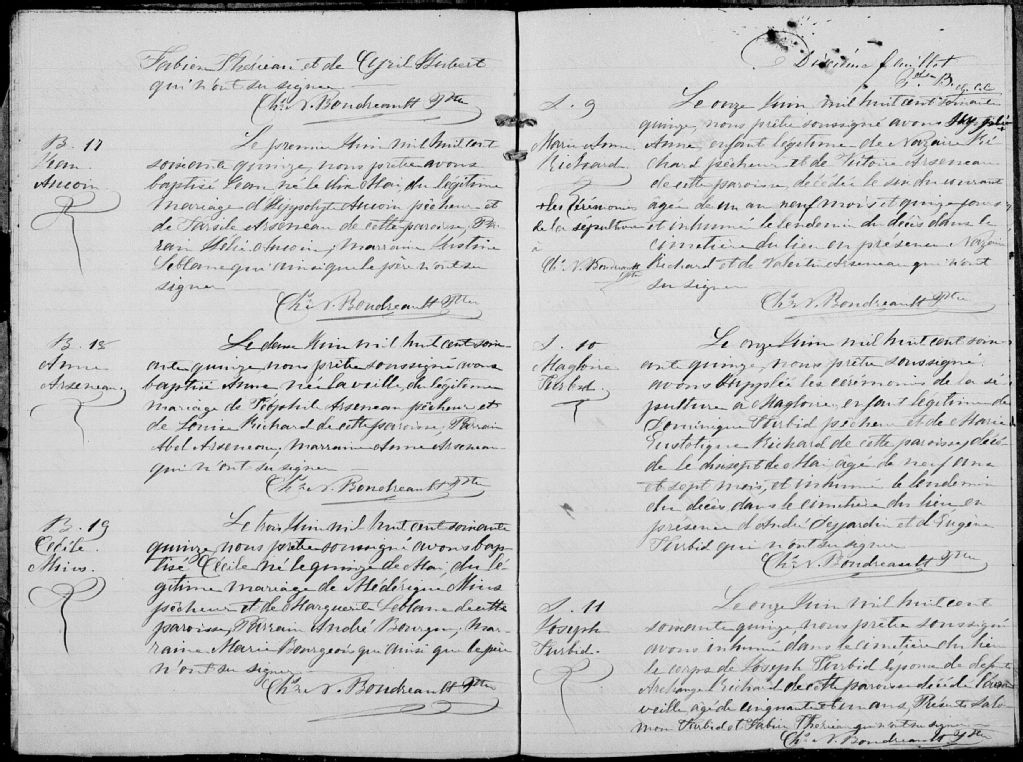 Fabien Thériau et de Cyril Hubert
qui n'ont su signer
Chs N. Boudreault Ptre
B. 17
Jean
Aucoin
Le premier Juin mil huit cent
soixante quinze, nous prêtre avons
baptisé Jean né le dix Mai, du légitime
mariage d'Hyppolyte Aucoin pêcheur et
de Tarsile Arseneau de cette paroisse, Par
rain Aucoin, marraine Justine
Leblanc qui ainsi que le père n'ont su
signer
Chs N. Boudreault Ptre
B. 18
Anne
Arseneau
Le deux Juin mil huit cent soix
ante quinze, nous prêtre soussigné avons
baptisé Anne née la veille, du légitime
mariage de Arseneau pêcheur et
de Louise Richard de cette paroisse, Parrain
Abel Arseneau, marraine Anne Arseneau
qui n'ont su signer
Chs N. Boudreault Ptre
B. 19
Cécile
Mius
Le trois Juin mil huit cent soixante
quinze, nous prêtre soussigné avons bap-
tisé Cécile né le quinze de Mai, du lé-
gitime mariage de Médérique Mius
pêcheur et de Marguerite Leblanc de cette
paroisse, Parrain André Bourgeois, mar-
raine Marie Bourgeois qui ainsi que le père
n'ont su signer
Chs N. Boudreault Ptre
Dixième feuillet
S. 9
Marie Anne
Richard
+ les cérémonies
de la sépulture
à
Chs N. Boudreault
Ptre
Le onze Juin mil huit cent soixante
quinze, nous prêtre soussigné avons suppléé +
Anne, enfant légitime de Nazaire Ri
chard pêcheur et de Victoire Arseneau
de cette paroisse, décédée le six du courant
agée de un an neuf mois et quinze jours
et inhumé le lendemain du décès dans le
cimetière du lieu en présence Nazaire
Richard et de Valentin Arseneau qui n'ont
su signer
Chs N. Boudreault Ptre
S. 10
Magloire
Turbid
Le onze Juin mil huit cent soix
ante quinze, nous prêtre soussigné
avons suppléé les cérémonies de la sé
pulture à Magloire, enfant légitime de
Dominique Turbid pêcheur et de Marie
Richard de cette paroisse, décé
dé le dix sept de Mai âgé de neuf ans
et sept mois, et inhumé le lendemain
du décès dans le cimetière du lieu en
présence d'André Desjardin et d'Eugène
Turbid qui n'ont su signer
Chs N. Boudreault Ptre
S. 11
Joseph
Turbid
Le onze Juin mil huit cent
soixante quinze, nous prêtre soussigné
avons inhumé dans le cimetière du lieu
le corps de Joseph Turbid époux de défunte
Archange Richard de cette paroisse décédé l'avant
veille âgé de cinquante et un ans, Présents Salo
mon Turbid et Fabien Thériau qui n'ont su signer
Chs N. Boudreault Ptre